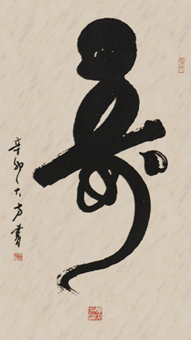 寿
辛卯大方書